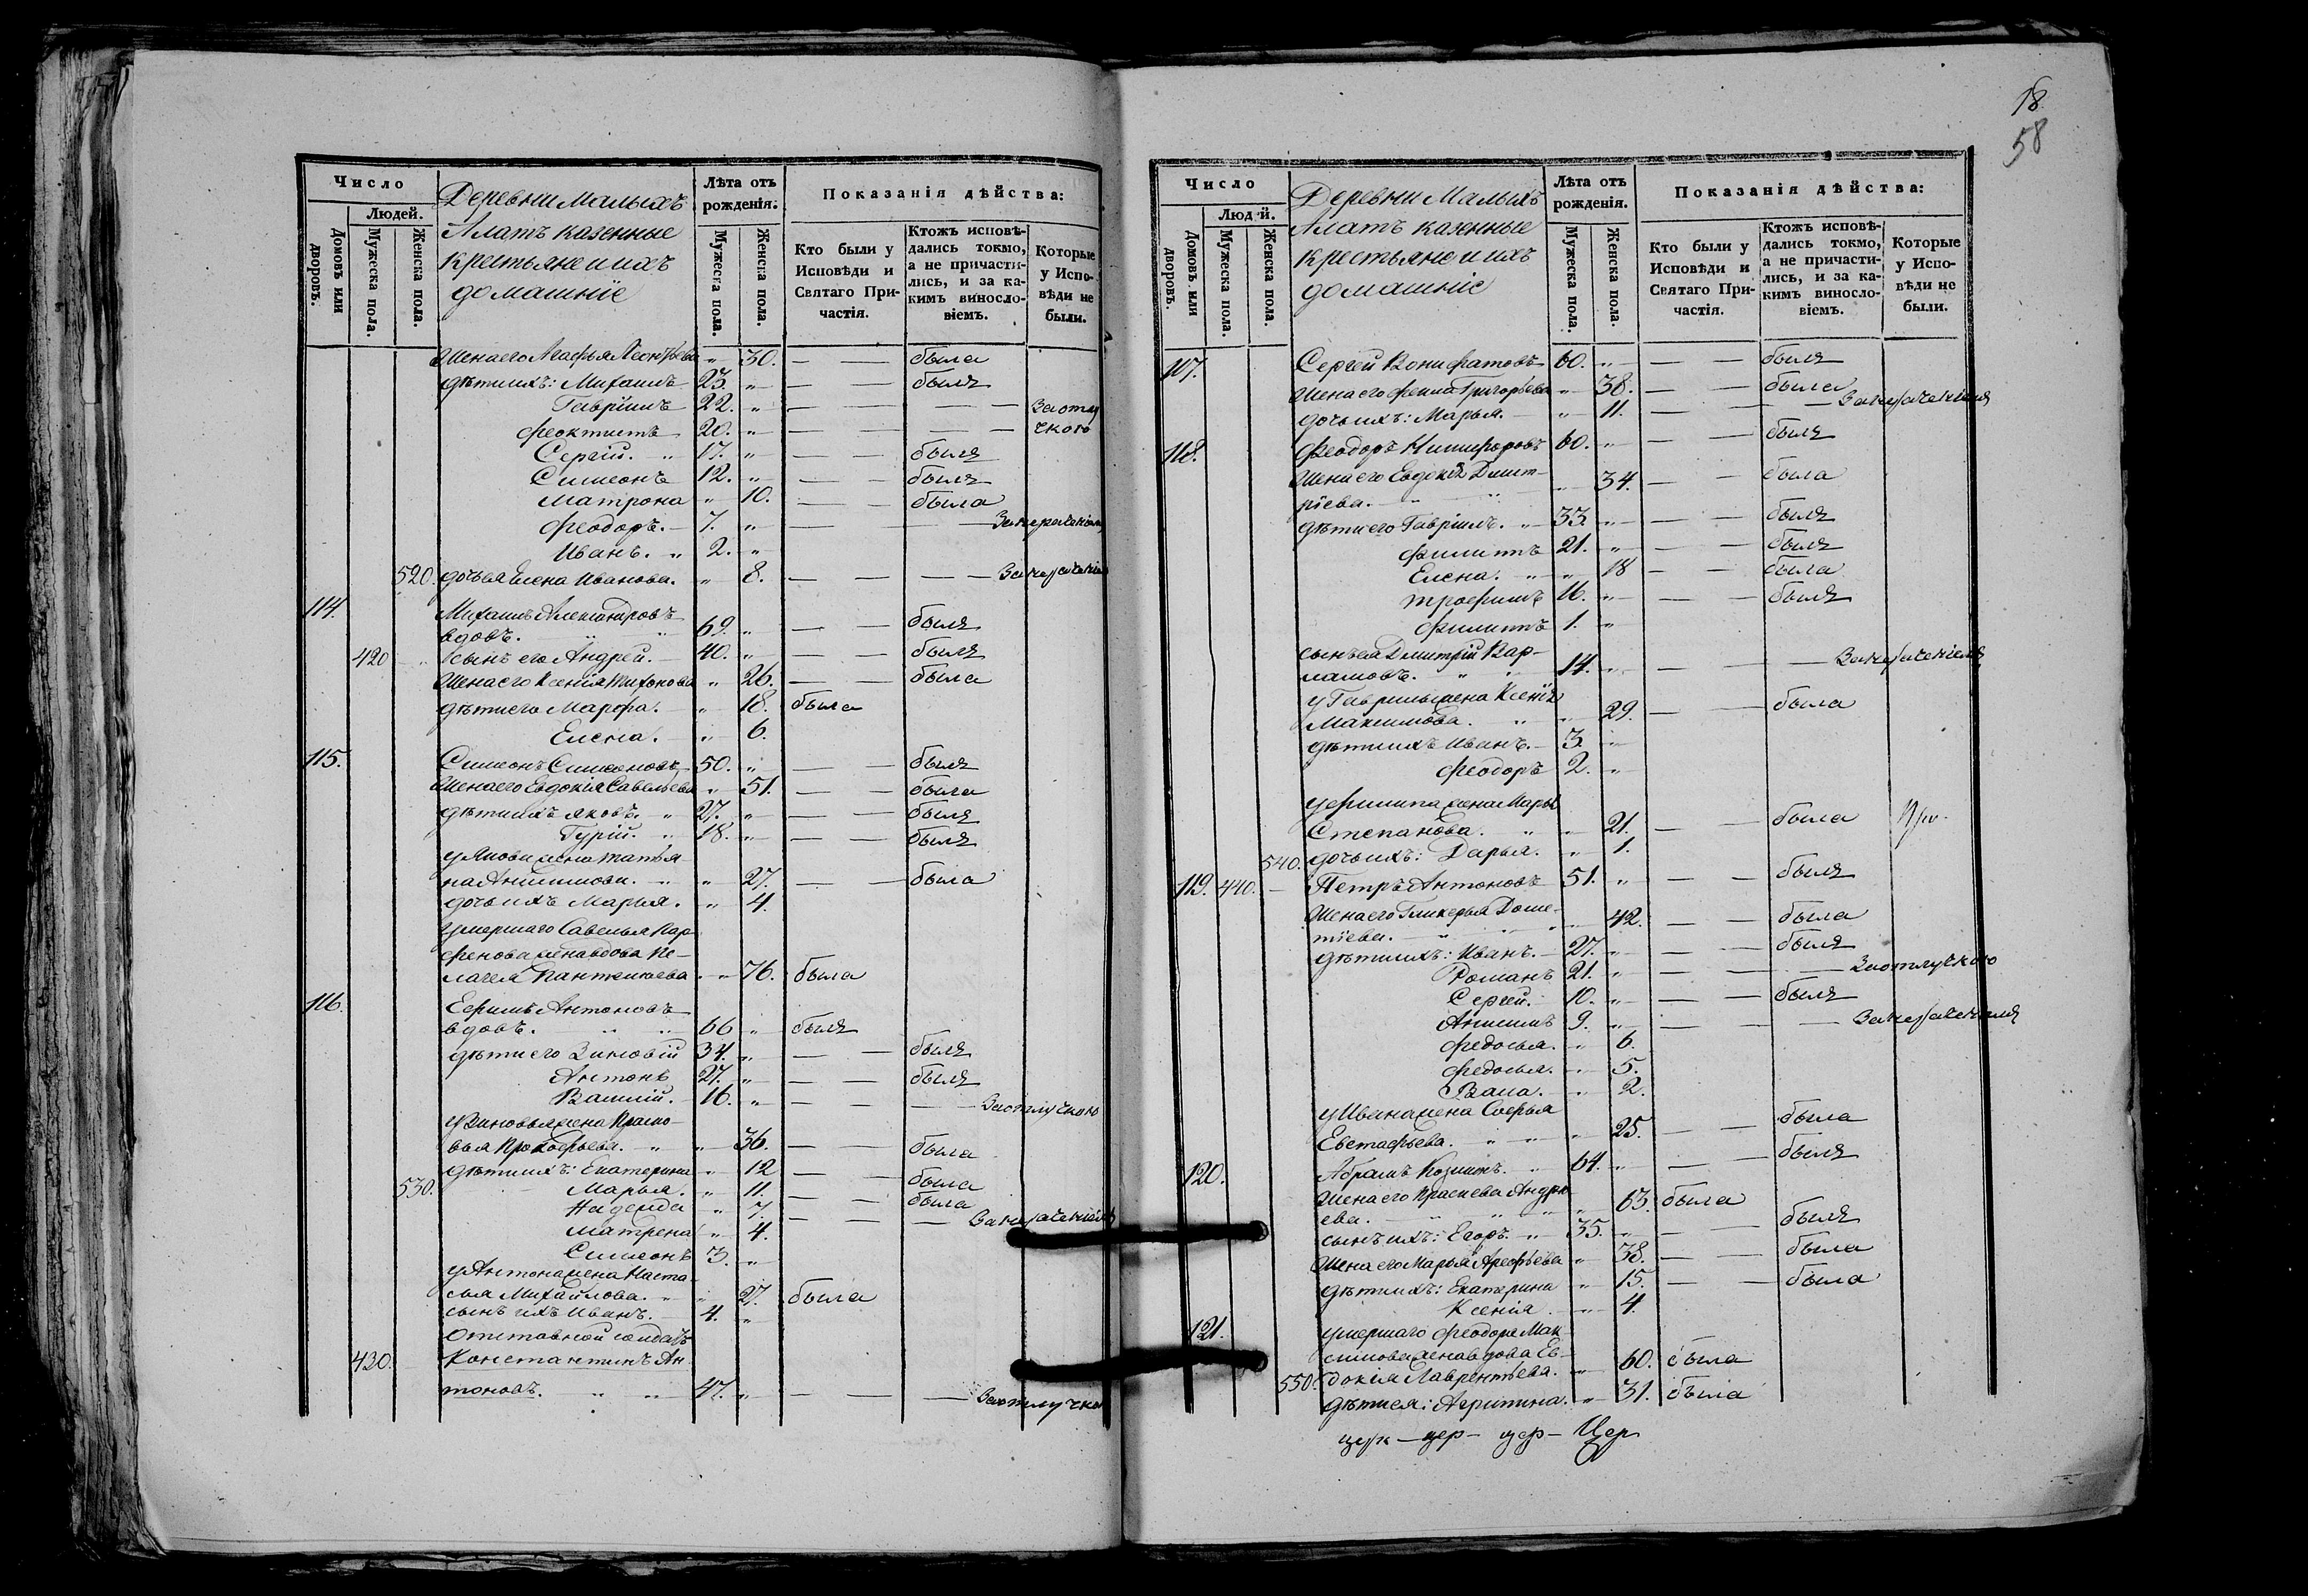 Число
Людей.
Домовъ или дворовъ.
Мужеска пола.
Женска пола.
Деревни Малыхъ
Алатъ казенные
крестьяне и ихъ
домашніе
Лѣта отъ рожденія.
Мужеска пола.
Женска пола.
Показанія дѣйства:
Кто были у Исповѣди и Святаго Причастія.
Ктожъ исповѣдались токмо, а не причастились, и за какимъ винословіемъ.
Которые у Исповѣди не были.
Жена его Агафья Леонтьева „ 30. — — была
дѣти ихъ: Михаилъ 23. „ — — былъ
Гавріилъ 22. „ — — — — За отлу
Феоктистъ 20. „ — — — — чкою
Сергій. „ 17. „ — — былъ
Симеонъ 12. „ — — былъ
Матрона „ 10. — — была
Феодоръ. 7. „ — — —
Иванъ. „ 2. „
520. дочь ея Елена Иванова. „ 8. — — — —
114. Михаилъ Александровъ
вдовъ. „ „ 69. „ — — былъ
420 сынъ его Андрей. 40. „ — — былъ
Жена его Ксенія Тихонова „ 26. — — была
дѣти его Марфа. „ 18. была
Елена. „ 6.
115. Симеонъ Симеоновъ 50. „ — — былъ
Жена его Евдокія Савельева „ 51. — — была
дѣти ихъ Яковъ. „ 27. „ — — былъ
Гурій. „ 18. „ — — былъ
у Якова жена Татья-
на Анисимова. „ „ 27. — — была
дочь ихъ Марья. „ 4.
умершаго Савелья Пар-
фенова жена вдова Пе-
лагея Пантелеева „ 76. была
116. Ефимъ Антоновъ
вдовъ. „ „ 66 „ былъ
дѣти его Зиновій 34. „ — — былъ
Антонъ 27. „ — — былъ
Василій. 16. „ — — — — За отлучкою
у Зиновья жена Праско-
вья Прокофьева. „ „ 36. — — была
дѣти ихъ: Екатерина „ 12 — — была
530. Марья. „ 11. — — была
Надежда „ 7. — — —
Матрена „ 4.
Симеонъ 3. „
у Антона жена Наста-
сья Михайлова. „ „ 27. была
сынъ ихъ Иванъ. 4. „
Отставной солдатъ
430. Константинъ Ан-
тоновъ. „ „ 47. „ — — — За отлучкою
18
58
Число
Людей.
Домовъ или дворовъ.
Мужеска пола.
Женска пола.
Деревни Малыхъ
Алатъ казенные
крестьяне и ихъ
домашніе
Лѣта отъ рожденія.
Мужеска пола.
Женска пола.
Показанія дѣйства:
Кто были у Исповѣди и Святаго Причастія.
Ктожъ исповѣдались токмо, а не причастились, и за какимъ винословіемъ.
Которые у Исповѣди не были.
107. Сергей Вонифатовъ 60. „ — — былъ
Жена его Фекла Григорьева „ 38. — — была
дочь ихъ: Марья. „ 11. — — —
118. Феодоръ Никифоровъ 60. „ — — былъ
Жена его Евдокія Дмит-
ріева. „ „ „ 34. — — была
дѣти его Гавріилъ. „ 33. „ — — былъ
Филиппъ 21. „ — — былъ
Елена. „ „ 18 — — была
Трофимъ 16. „ — — былъ
Филиппъ 1. „
сынъ ея Дмитрій Вар-
ламовъ. „ „ 14. „ — — —
у Гаврилы жена Ксенія
Максимова. „ „ 29. — — была
дѣти ихъ Иванъ. 3. „
Феодоръ 2. „
у Филиппа жена Марья
Степанова. „ „ 21. — — была
540. дочь ихъ: Дарья. „ 1.
119. 440. Петръ Антоновъ 51. „ — — былъ
Жена его Гликерья
„ 42. — — была
дѣти ихъ: Иванъ. 27. „ — — былъ
Романъ 21. „ — — — За отлучкою
Сергей. 10. „ — — былъ
Анисимъ 9. „ — — —
Федосья. „ 6.
Федосья. „ 5.
Васа. „ 2.
у Ивана жена Софья
Евстафьева. „ „ „ 25. — — была
120. Абрамъ Козминъ. „ 64. „ — — былъ
Жена его Прасковья Андре-
ева. „ „ „ 63. была
сынъ ихъ: Егоръ. „ 35. „ — — былъ
Жена его Марья Арефьева „ 38. — — была
дѣти ихъ: Екатерина „ 15. — — была
Ксенія „ 4.
121. умершаго Феодора Мак-
симова жена вдова Ев-
550. докія Лаврентьева. „ 60. была
дѣти ея: Агрипина. „ 31. была